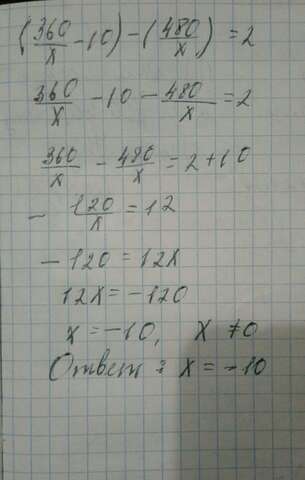 (360/x - 10) - (480/x) = 2
360/x - 10 - 480/x = 2
360/x - 480/x = 2 + 10
- 120/x = 12
- 120 = 12x
12x = -120
x = -10, x ≠ 0
Ответ: x = -10